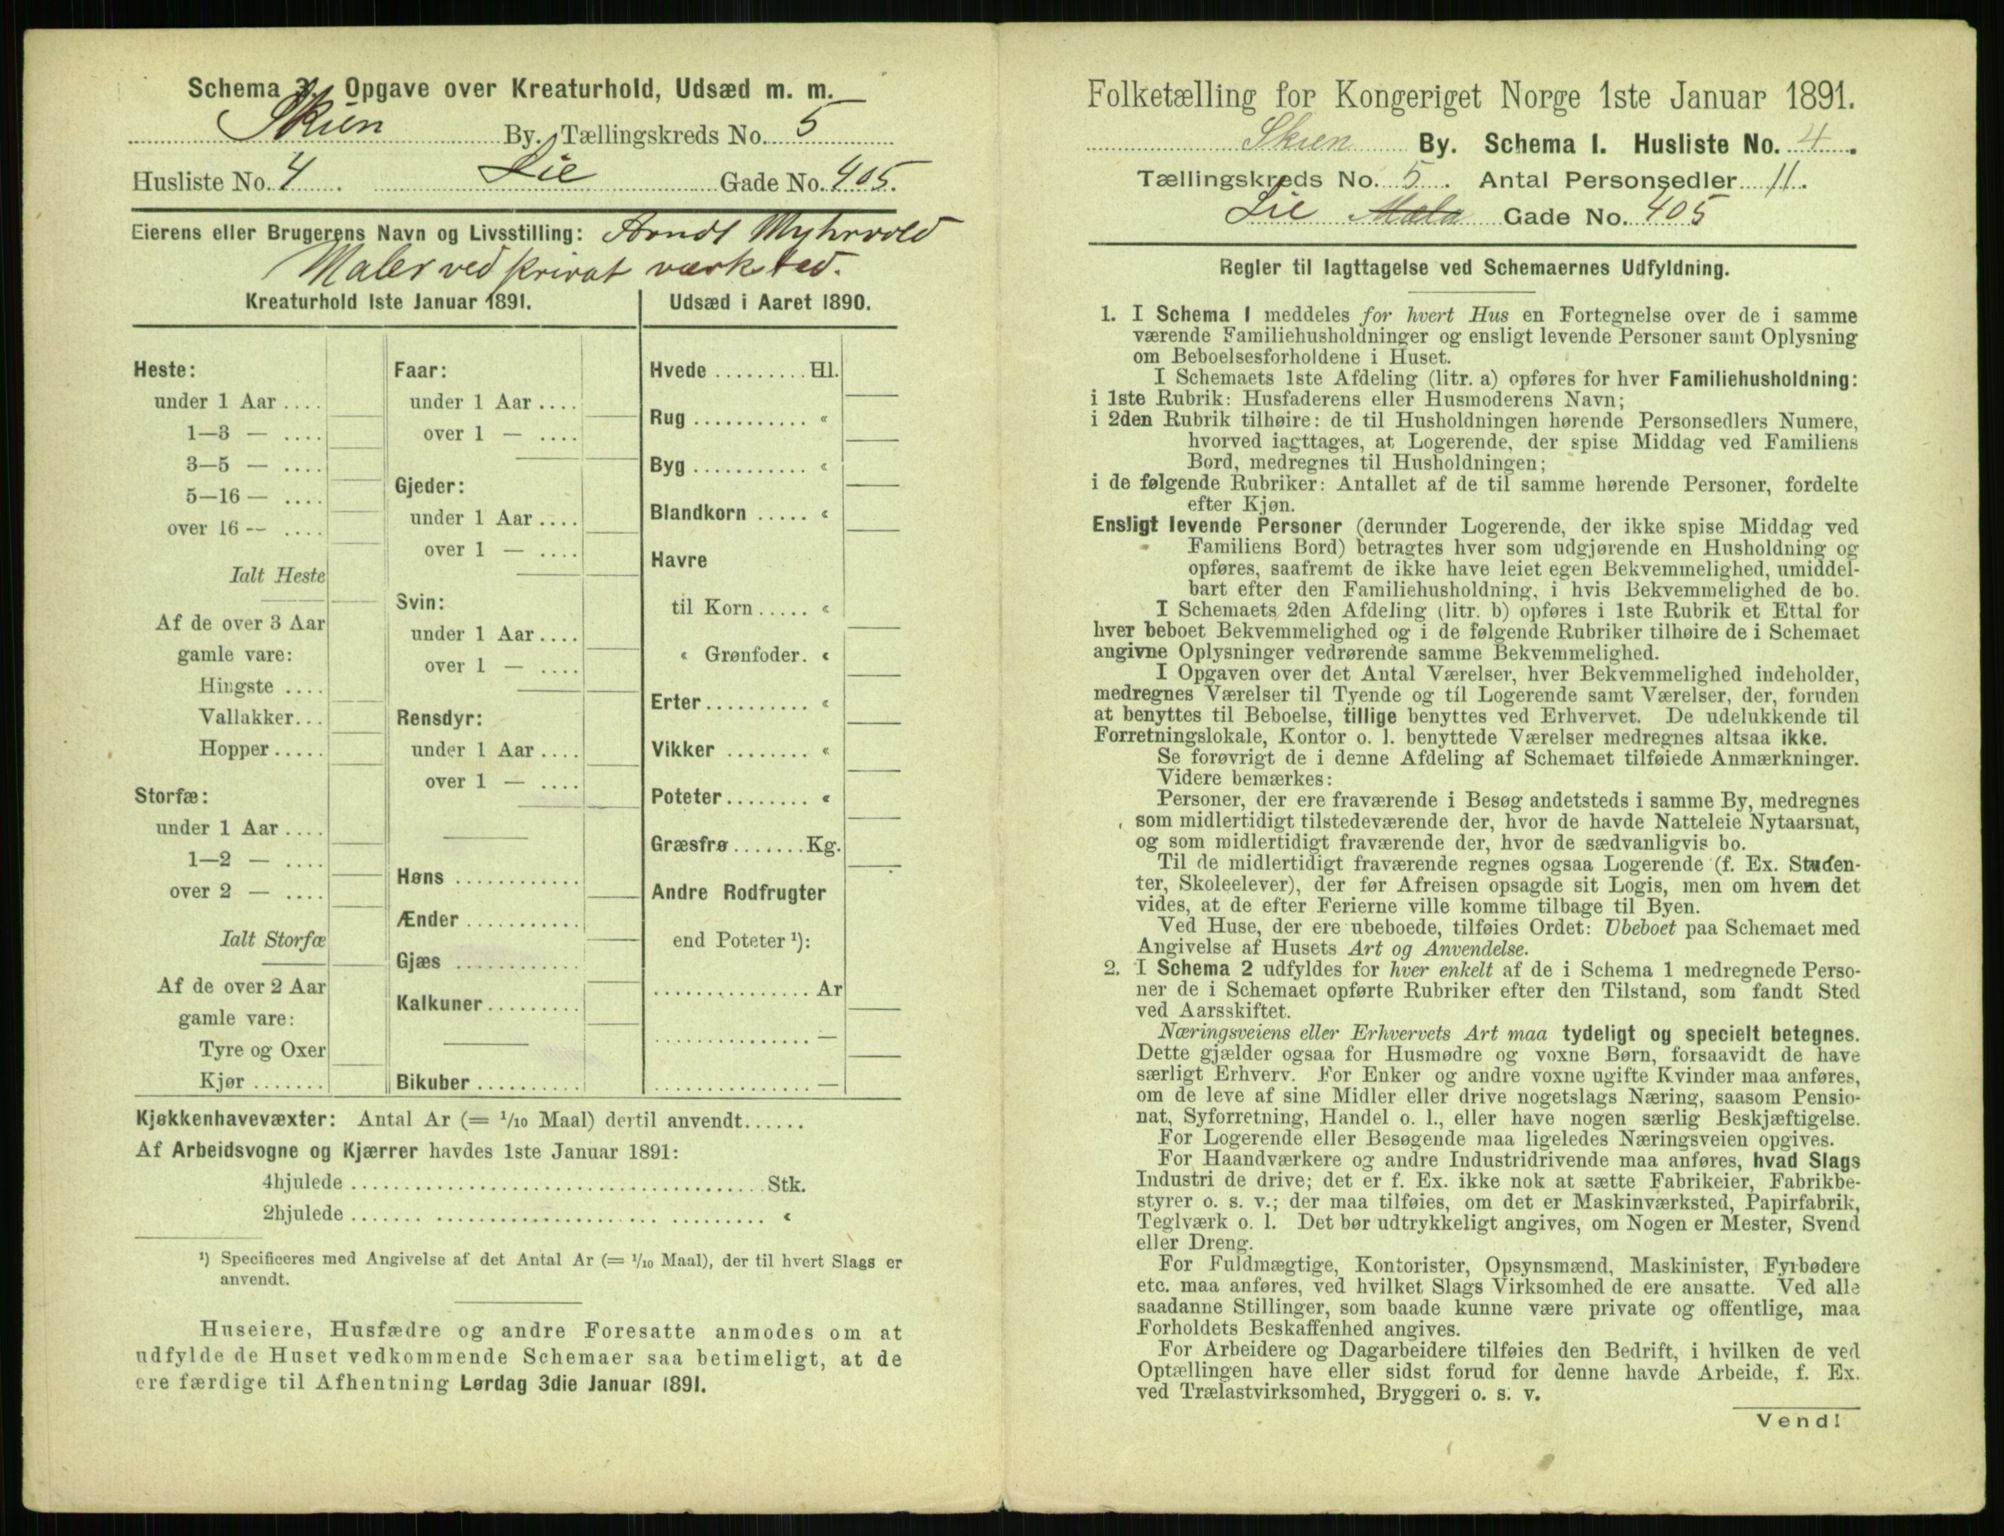 Schema 3. Opgave over Kreaturhold, Udsæd m. m.
Skien By. Tællingskreds No. 5
Husliste No. 4 Lie Gade No. 405.
Eierens eller Brugerens Navn og Livsstilling: Arndt Myhrvold
Maler ved privat værksted.
Kreaturhold 1ste Januar 1891.
Heste:
under 1 Aar ....
1—3 — ....
3—5 — ....
5—16 — ....
over 16 -- ....
Ialt Heste
Af de over 3 Aar
gamle vare:
Hingste ....
Vallakker...
Hopper .....
Storfæ:
under 1 Aar ....
1—2 — ....
over 2 — ....
Ialt Storfæ
Af de over 2 Aar
gamle vare:
Tyre og Oxer
Kjør .......
Faar:
under 1 Aar ....
over 1 — ....
Gjeder:
under 1 Aar ....
over 1 — ....
Svin:
under 1 Aar ....
over 1 — ....
Rensdyr:
under 1 Aar ....
over 1 — ....
Høns ............
Ænder ...........
Gjæs ............
Kalkuner.........
Bikuber ..........
Udsæd i Aaret 1890.
Hvede ......... Hl.
Rug ........... «
Byg ........... «
Blandkorn ..... «
Havre
til Korn ..... «
« Grønfoder. «
Erter.......... «
Vikker ........ «
Poteter ........ «
Græsfrø ....... Kg.
Andre Rodfrugter
end Poteter ¹):
............... Ar
............... —
............... —
Kjøkkenhavevæxter: Antal Ar (= 1/10 Maal) dertil anvendt......
Af Arbeidsvogne og Kjærrer havdes 1ste Januar 1891:
4hjulede ........................................ Stk.
2hjulede ........................................ «
¹) Specificeres med Angivelse af det Antal Ar (= 1/10 Maal), der til hvert Slags er
anvendt.
Huseiere, Husfædre og andre Foresatte anmodes om at
udfylde de Huset vedkommende Schemaer saa betimeligt, at de
ere færdige til Afhentning Lørdag 3die Januar 1891.
Folketælling for Kongeriget Norge 1ste Januar 1891.
Skien By. Schema I. Husliste No. 4.
Tællingskreds No. 5. Antal Personsedler 11.
Lie Mæla Gade No. 405
Regler til Iagttagelse ved Schemaernes Udfyldning.
1. I Schema 1 meddeles for hvert Hus en Fortegnelse over de i samme
værende Familiehusholdninger og ensligt levende Personer samt Oplysning
om Beboelsesforholdene i Huset.
I Schemaets 1ste Afdeling (litr. a) opføres for hver Familiehusholdning:
i 1ste Rubrik: Husfaderens eller Husmoderens Navn;
i 2den Rubrik tilhøire: de til Husholdningen hørende Personsedlers Numere,
hvorved iagttages, at Logerende, der spise Middag ved Familiens
Bord, medregnes til Husholdningen;
i de følgende Rubriker: Antallet af de til samme hørende Personer, fordelte
efter Kjøn.
Ensligt levende Personer (derunder Logerende, der ikke spise Middag ved
Familiens Bord) betragtes hver som udgjørende en Husholdning og
opføres, saafremt de ikke have leiet egen Bekvemmelighed, umiddel-
bart efter den Familiehusholdning, i hvis Bekvemmelighed de bo.
I Schemaets 2den Afdeling (litr. b) opføres i 1ste Rubrik et Ettal for
hver beboet Bekvemmelighed og i de følgende Rubriker tilhøire de i Schemaet
angivne Oplysninger vedrørende samme Bekvemmelighed.
I Opgaven over det Antal Værelser, hver Bekvemmelighed indeholder,
medregnes Værelser til Tyende og til Logerende samt Værelser, der, foruden
at benyttes til Beboelse, tillige benyttes ved Erhvervet. De udelukkende til
Forretningslokale, Kontor o. l. benyttede Værelser medregnes altsaa ikke.
Se forøvrigt de i denne Afdeling af Schemaet tilføiede Anmærkninger.
Videre bemærkes:
Personer, der ere fraværende i Besøg andetsteds i samme By, medregnes
som midlertidigt tilstedeværende der, hvor de havde Natteleie Nytaarsnat,
og som midlertidigt fraværende der, hvor de sædvanligvis bo.
Til de midlertidigt fraværende regnes ogsaa Logerende (f. Ex. Studen-
ter, Skoleelever), der før Afreisen opsagde sit Logis, men om hvem det
vides, at de efter Ferierne ville komme tilbage til Byen.
Ved Huse, der ere ubeboede, tilføies Ordet: Ubeboet paa Schemaet med
Angivelse af Husets Art og Anvendelse.
2. I Schema 2 udfyldes for hver enkelt af de i Schema 1 medregnede Perso-
ner de i Schemaet opførte Rubriker efter den Tilstand, som fandt Sted
ved Aarsskiftet.
Næringsveiens eller Erhvervets Art maa tydeligt og specielt betegnes.
Dette gjælder ogsaa for Husmødre og voxne Børn, forsaavidt de have
særligt Erhverv. For Enker og andre voxne ugifte Kvinder maa anføres,
om de leve af sine Midler eller drive nogetslags Næring, saasom Pensio-
nat, Syforretning, Handel o. l., eller have nogen særlig Beskjæftigelse.
For Logerende eller Besøgende maa ligeledes Næringsveien opgives.
For Haandværkere og andre Industridrivende maa anføres, hvad Slags
Industri de drive; det er f. Ex. ikke nok at sætte Fabrikeier, Fabrikbe-
styrer o. s. v.; der maa tilføies, om det er Maskinværksted, Papirfabrik,
Teglværk o. l. Det bør udtrykkeligt angives, om Nogen er Mester, Svend
eller Dreng.
For Fuldmægtige, Kontorister, Opsynsmænd, Maskinister, Fyrbødere
etc. maa anføres, ved hvilket Slags Virksomhed de ere ansatte. Ved alle
saadanne Stillinger, som baade kunne være private og offentlige, maa
Forholdets Beskaffenhed angives.
For Arbeidere og Dagarbeidere tilføies den Bedrift, i hvilken de ved
Optællingen have eller sidst forud for denne havde Arbeide, f. Ex.
ved Trælastvirksomhed, Bryggeri o. s. v.
Vend!